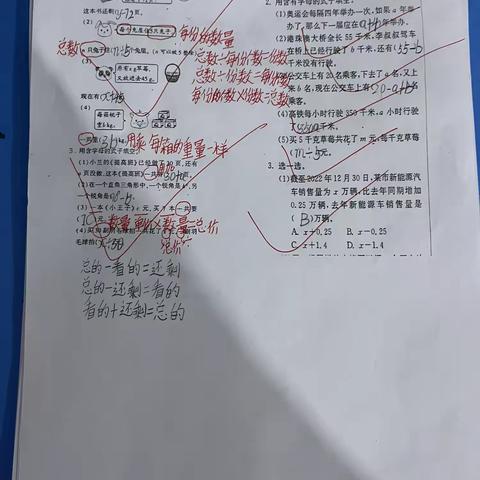 这本书还剩(a-72)页。
(2)
每份兔子
每份份数量
总数÷每份数=份数
总数÷份数=每份数
每份数×份数=总数
总数
(3)
现在有
(4)
每箱桃子
重bkg。
每箱的重量一样
3. 用含字母的式子填空。
(1)小兰的《提高班》已经做了30页,还有
页没做,这本《提高班》一共
(2)在一个直角三角形中,一个锐角是b°,另
一个锐角是
(3)一本《小王子》c元,买7本一共要
(7c)元。
数量 单价×数量=总价
总价
毛球拍
总的-看的=还剩
总的-还剩=看的
看的+还剩=总的
2. 用含有字母的式子填空。
(1)奥运会每隔四年举办一次,如果a年举
办了,那么下一届应在(a+4)年举办。
(2)港珠澳大桥全长55千米,李叔叔驾车
在桥上已经行驶了b千米,还有(55-b)
千米没有行驶。
公交车上有20名乘客,下去了a名,又上
来b名,现在公交车上有(20-a+b)名
乘客。
(4)高铁每小时行驶350千米,a小时行驶
千米。
(5)买5千克草莓共花了m元,每千克草莓
(m÷5)元。
3. 选一选。
(1)截至2022年12月30日,某市新能源汽
车销售量为x万辆,比去年同期增加
0.25万辆,去年新能源车销售量是
(B)万辆。
A. x+0.25 B. x-0.25
C. x+1.4 D. x-1.4